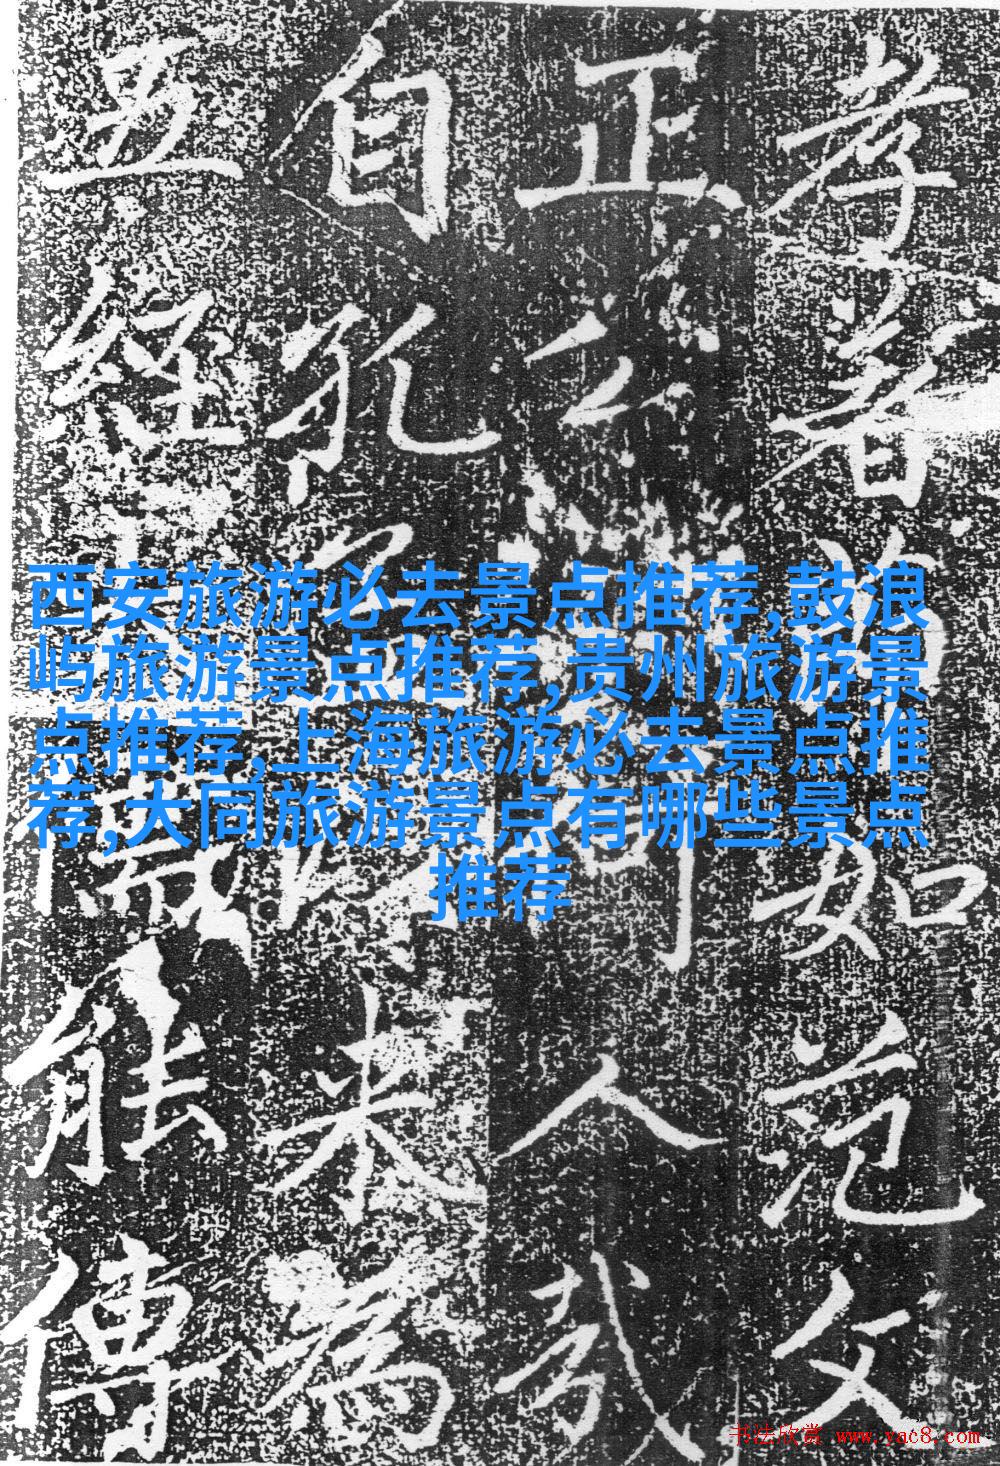 孝著如范文
正公人哉
自孔以来為
五經能傳
西安旅游必去景点推荐,鼓浪
屿旅游景点推荐,贵州旅游景
点推荐,上海旅游必去景点推
荐,大同旅游景点有哪些景点
推荐
书法欣赏 www.yac8.com